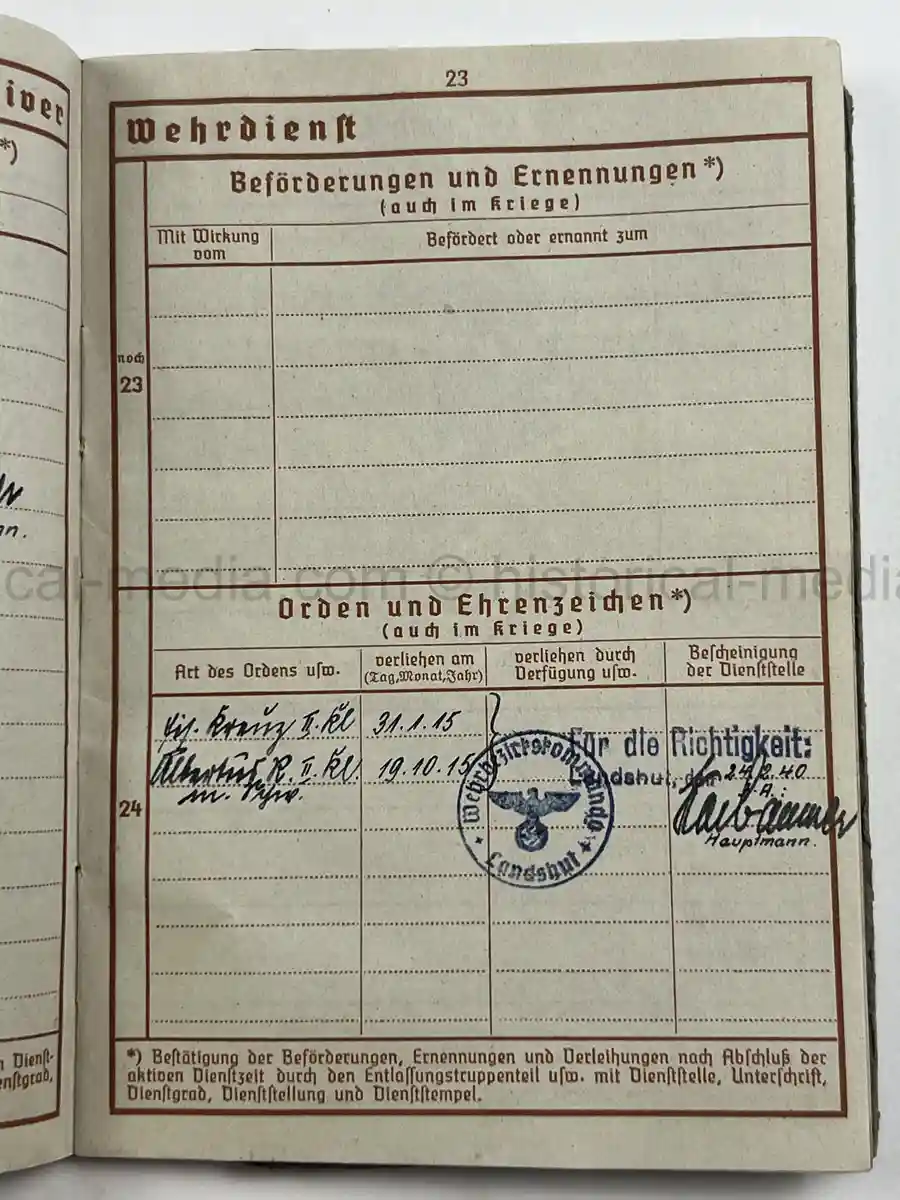 iver
*)
23
Wehrdienst
Beförderungen und Ernennungen *)
(auch im Kriege)
Mit Wirkung
vom
Befördert oder ernannt zum
noch
23
cal-media.com © historical-media
Orden und Ehrenzeichen *)
(auch im Kriege)
Art des Ordens usw.
verliehen am
(Tag, Monat, Jahr)
verliehen durch
Verfügung usw.
Bescheinigung
der Dienststelle
Eis. Kreuz II. Kl 31.1.15
Albertus R. II. Kl. 19.10.15
m. Schw.
Für die Richtigkeit:
Landshut, den 24.2.40
I.A.:
Hauptmann.
Wehrbezirkskommando
Landshut
24
*) Bestätigung der Beförderungen, Ernennungen und Verleihungen nach Abschluß der
aktiven Dienstzeit durch den Entlassungstruppenteil usw. mit Dienststelle, Unterschrift,
Dienstgrad, Dienststellung und Dienststempel.
n Dienst-
enstgrad,